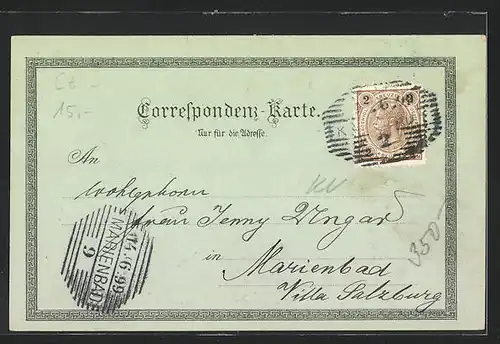 Cö -
15,-
Correspondenz-Karte.
Nur für die Adresse.
2 2
An
Wohlgeborn
Frau Jenny Ungar
in
Marienbad
Villa Salzburg
KV
350-
14.6.99
MARIENBAD
9